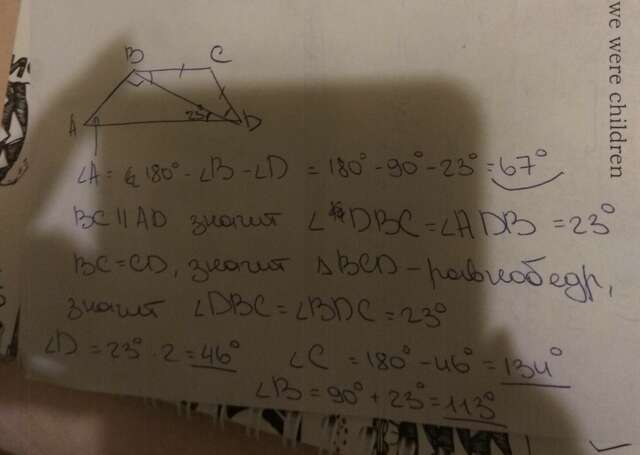 we were children
B C
A 23° D
∠A = 180° - ∠B - ∠D = 180° - 90° - 23° = 67°
BC || AD значит ∠DBC = ∠ADB = 23°
BC = CD, значит ΔBCD - равнобедр,
значит ∠DBC = ∠BDC = 23°
∠D = 23° · 2 = 46° ∠C = 180° - 46° = 134°
∠B = 90° + 23° = 113°